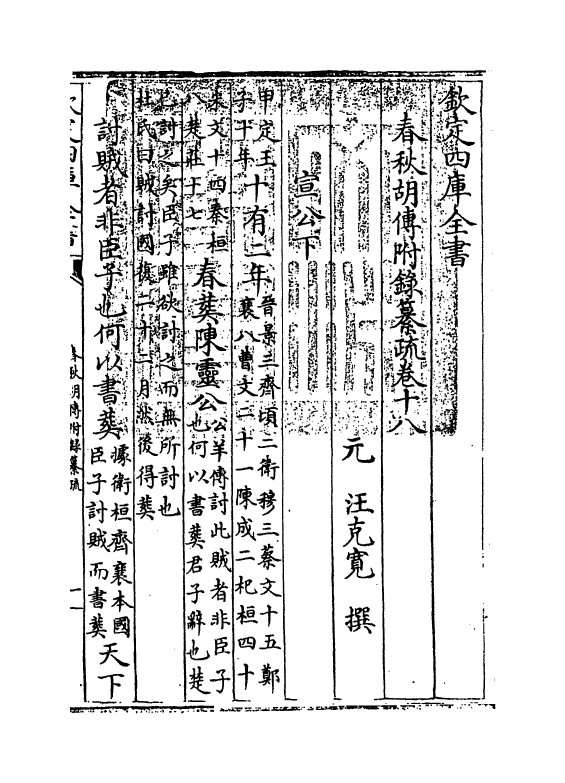 欽定四庫全書
春秋胡傳附錄纂疏卷十八
元 汪克寬 撰
宣公下
甲定王
子十年
十有二年
晉景三齊頃二衛穆三蔡文十五鄭
襄八曹文二十一陳成二杞桓四十
宋文十四秦桓
八楚莊十七
春葬陳靈公
公羊傳討此賊者非臣子
也何以書葬君子辭也楚
已討之矣臣子雖欲討之而無所討也
杜氏曰賊討國復二十二月然後得葬
討賊者非臣子也何以書葬
據衛桓齊襄本國
臣子討賊而書葬
天下
欽定四庫全書
春秋胡傳附錄纂疏
一